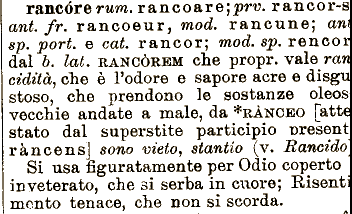 rancóre rum. rancoare; prv. rancor-s
ant. fr. rancoeur, mod. rancune; ant
sp. port. e cat. rancor; mod. sp. rencor
dal b. lat. RANCÒREM che propr. vale ran
cidità, che è l'odore e sapore acre e disgu
stoso, che prendono le sostanze oleos
vecchie andate a male, da *RÀNCEO [atte
stato dal superstite participio present
ràncens] sono vieto, stantio (v. Rancido)
Si usa figuratamente per Odio coperto
inveterato, che si serba in cuore; Risenti
mento tenace, che non si scorda.